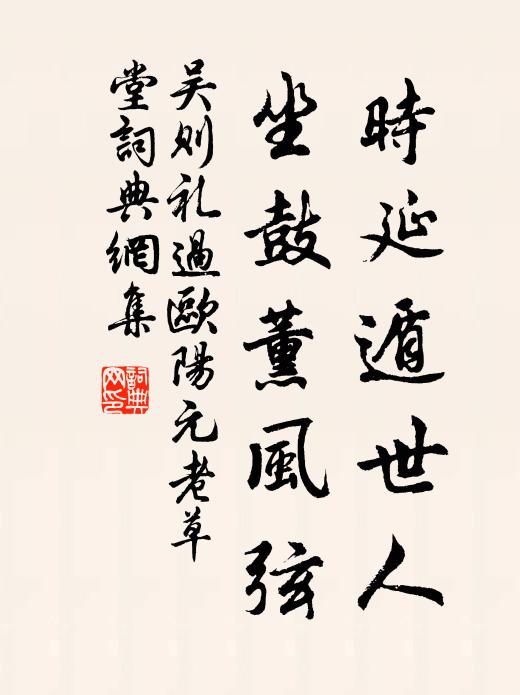 時延遁世人
坐鼓薰風弦
吴则礼過歐陽元老草
堂詞典網集
詞典
网印